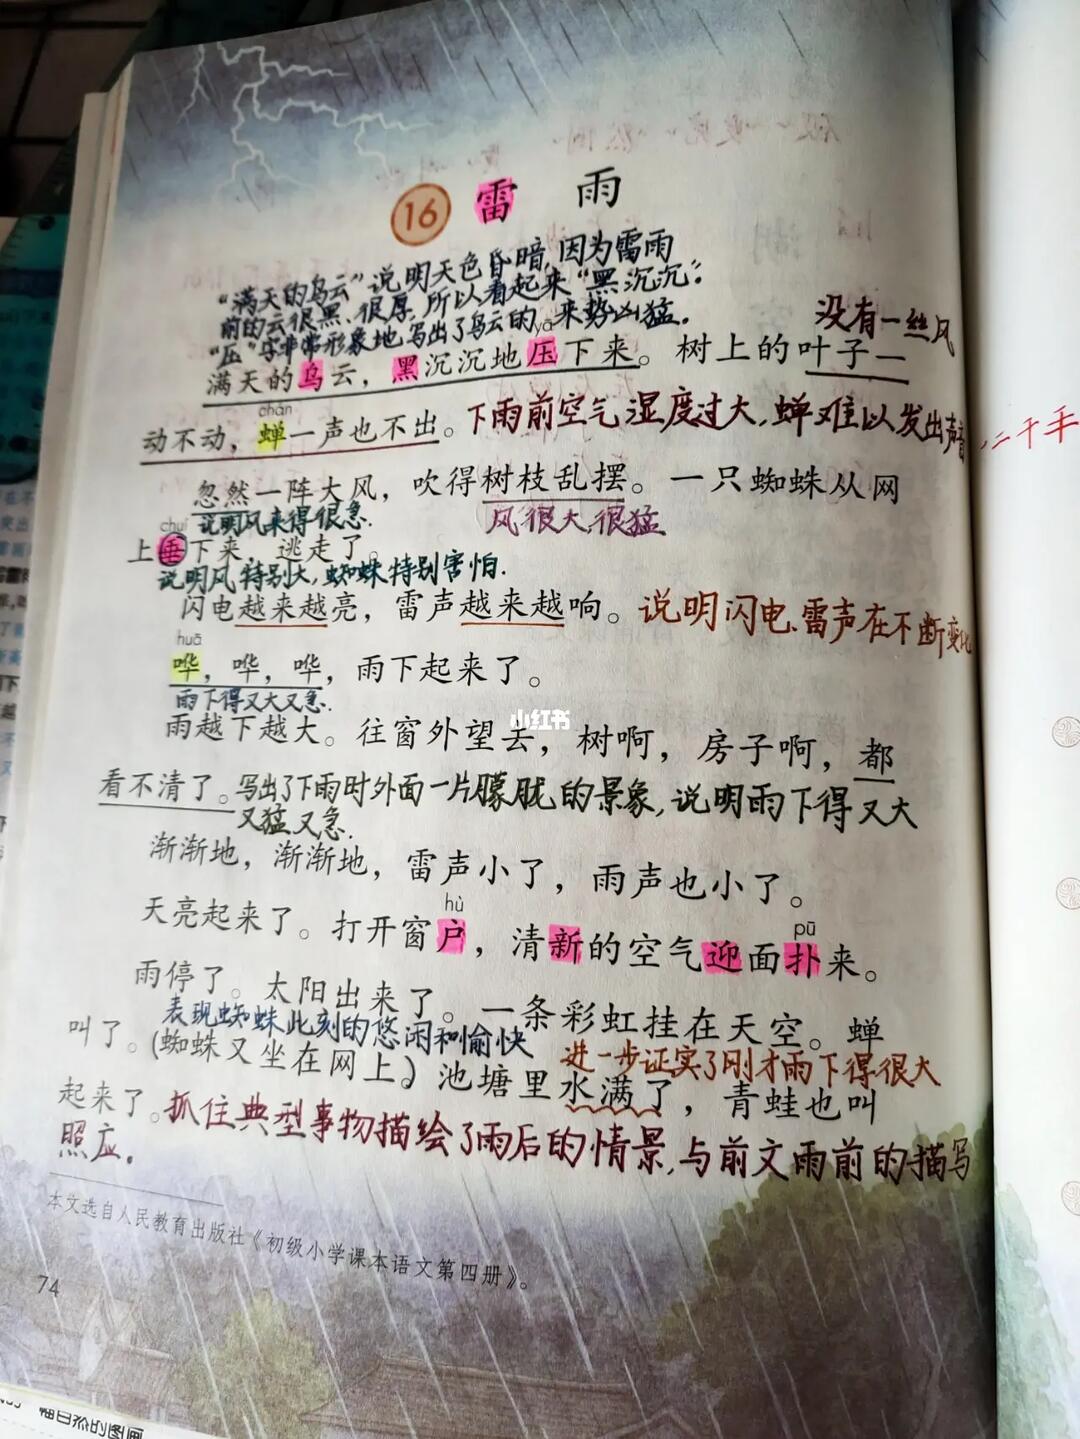 16 雷 雨
“满天的乌云”说明天色昏暗,因为雷雨
前的云很黑、很厚,所以看起来“黑沉沉”。
“压”字非常形象地写出了乌云的来势凶猛。
没有一丝风
yā
满天的乌云，黑沉沉地压下来。树上的叶子一
chán
动不动，蝉一声也不出。下雨前空气湿度过大,蝉难以发出声音
忽然一阵大风，吹得树枝乱摆。一只蜘蛛从网
说明风来得很急.
风很大、很猛
chuí
上垂下来，逃走了。
说明风特别大,蜘蛛特别害怕.
闪电越来越亮，雷声越来越响。说明闪电、雷声在不断变化
huā
哗，哗，哗，雨下起来了。
雨下得又大又急.
小红书
雨越下越大。往窗外望去，树啊，房子啊，都
看不清了。写出了下雨时外面一片朦胧的景象,说明雨下得又大
又猛又急.
渐渐地，渐渐地，雷声小了，雨声也小了。
hù
pū
天亮起来了。打开窗户，清新的空气迎面扑来。
雨停了。太阳出来了。一条彩虹挂在天空。蝉
表现蜘蛛此刻的悠闲和愉快
叫了。(蜘蛛又坐在网上。)池塘里水满了，青蛙也叫
进一步证实了刚才雨下得很大
起来了。抓住典型事物描绘了雨后的情景,与前文雨前的描写
照应。
本文选自人民教育出版社《初级小学课本语文第四册》。
74